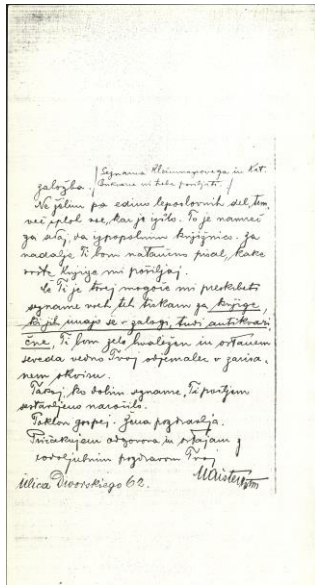 / Seznama Kleinmayrovega in Kat.
Bukvarne mi treba pošiljati. /
založba.
Ne želim pa edino leposlovnih del, tem-
več sploh vse, kar je izšlo. To je namreč
za sedaj, da izpopolnim knjižnico. Za
nadalje Ti bom natančno pisal, kake
vrste knjige mi pošiljaj.
Če Ti je torej mogoče mi preskrbeti
sezname vseh teh tiskarn za knjige,
ki jih imajo še v zalogi, tudi antikvarič-
čne, Ti bom zelo hvaležen in ostanem
seveda vedno Tvoj odjemalec v
nem okviru.
Takoj, ko dobim sezname, Ti pošljem
sestavljeno naročilo.
Poklon gospej. Žena pozdravlja.
Pričakujem odgovora in ostajam z
rodoljubnim pozdravom Tvoj
Maister
Ulica Dworskiego 62.